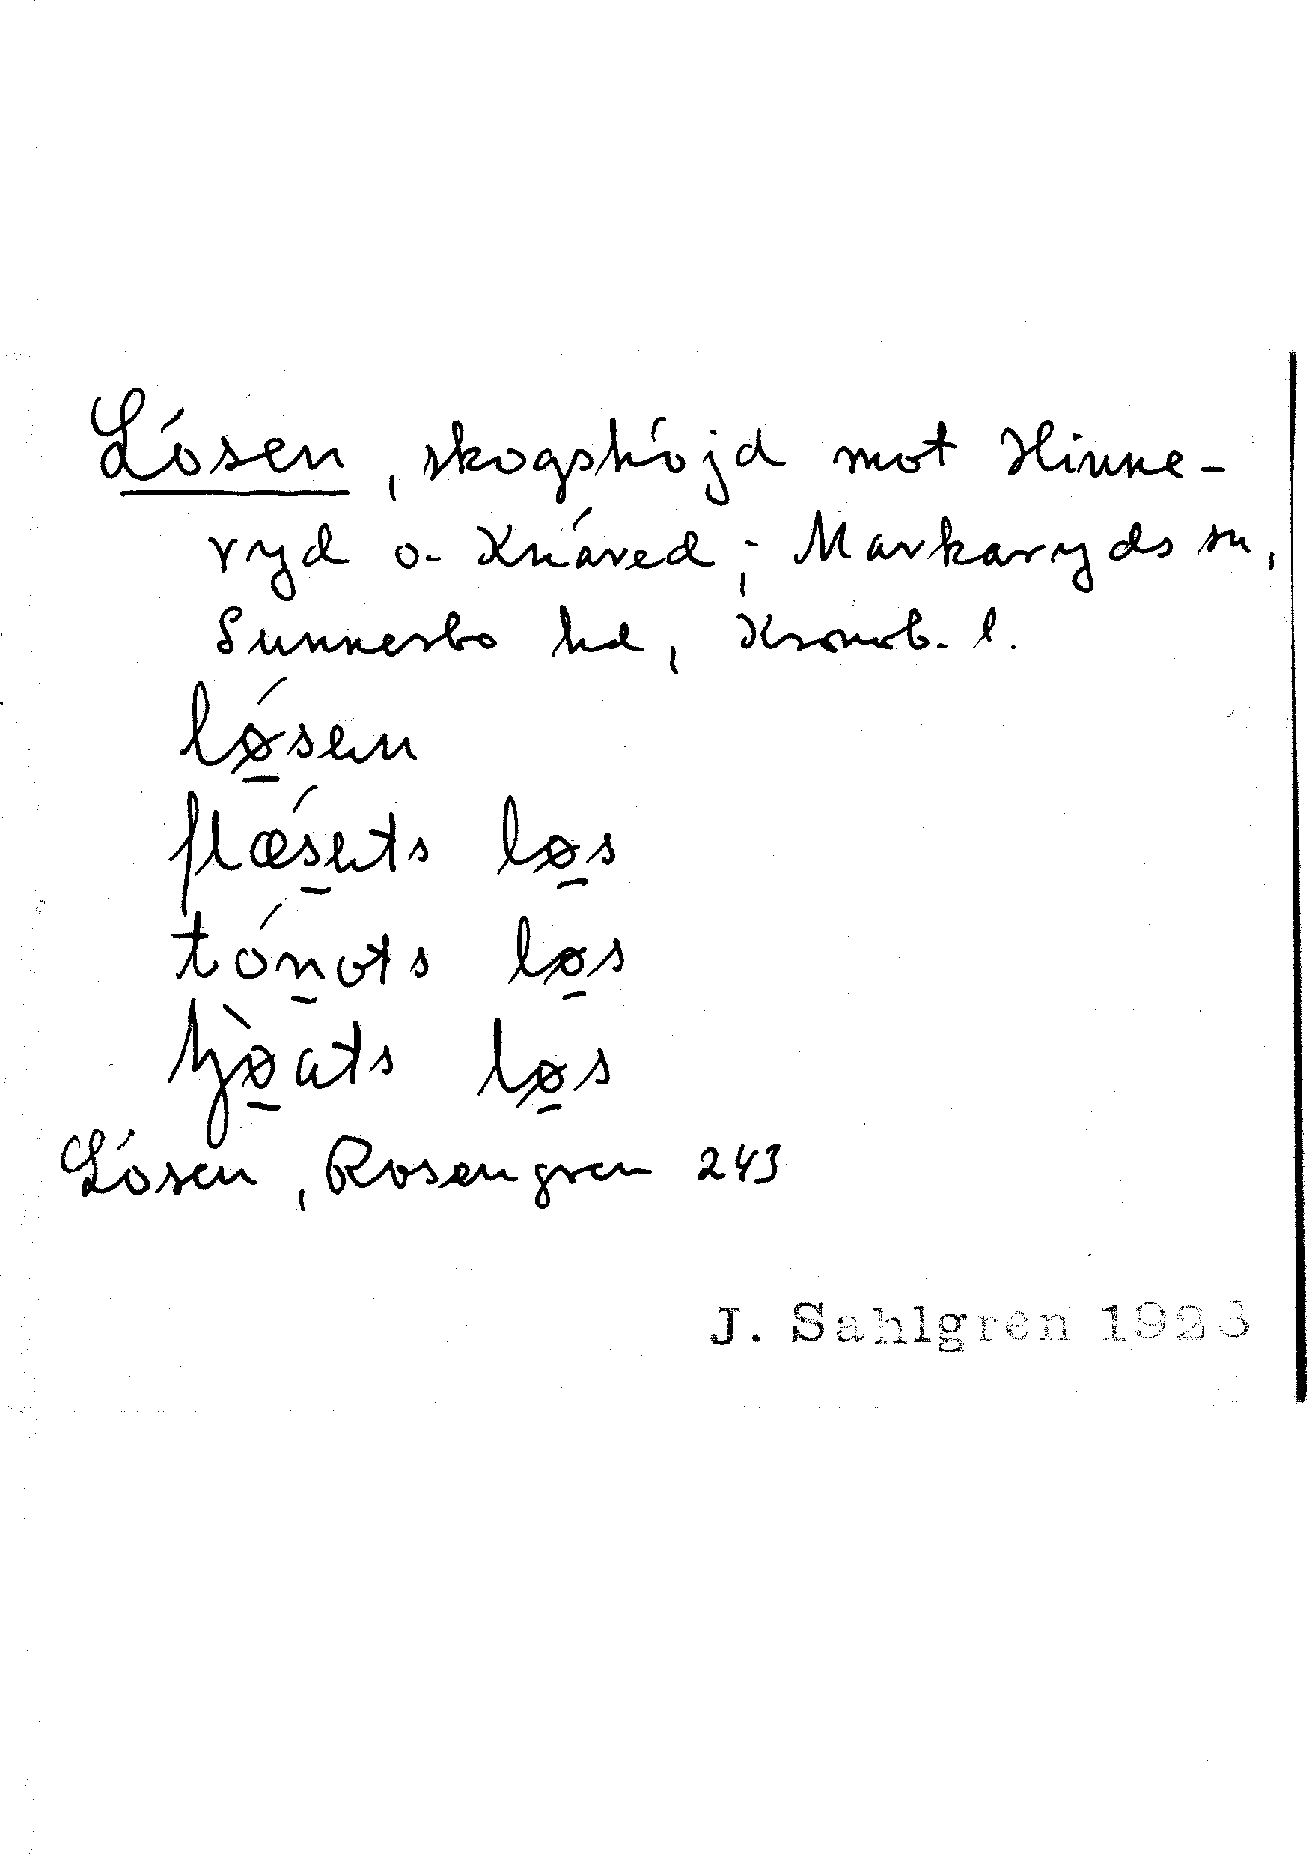 Lósen, skogshójd mot Hinne-
ryd o. Knáred; Markaryds sn,
Sunnerbo hd, Kronob. l.
lǿsen
flǽsets løs
tónots løs
løs
Lósen, Rosengren 243
J. Sahlgren 1923